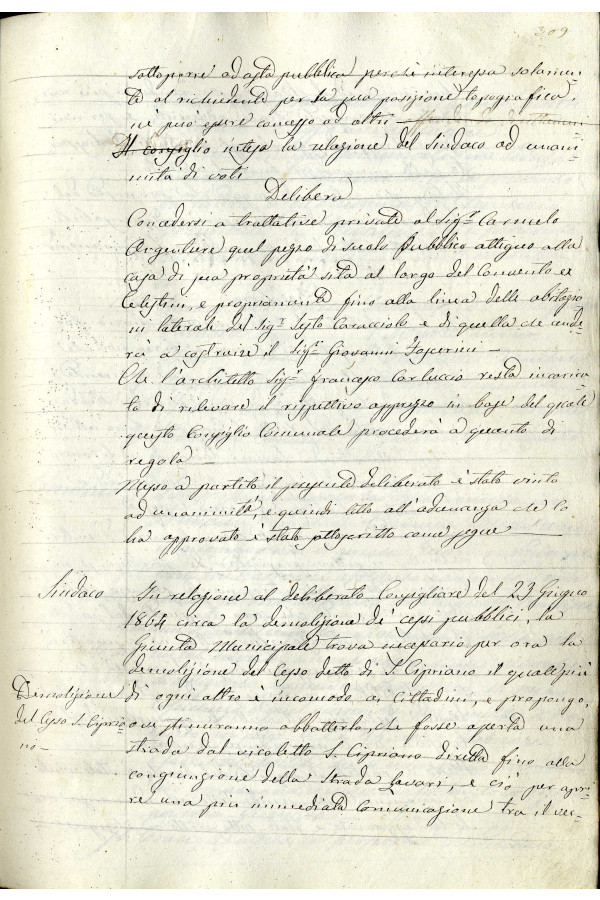 309
sottoporre ad asta pubblica perchè interessa solamen-
te al richiedente per la sua posizione topografica,
nè può essere concesso ad altri
Il consiglio intesa la relazione del Sindaco ad unani-
mità di voti
Delibera
Concedersi a trattative private al Sigr Carmelo
quel pezzo di suolo Pubblico attiguo alla
casa di sua proprietà sita al largo del Convento ex
Celestini, e propriamente fino alla linea delle abitazio-
ni laterali del Sigr Sesto Caracciolo e di quella che
rà a costruire il Sigr Giovanni
Che l'architetto Sigr Francesco Carluccio resta incarica-
to di rilevare il rispettivo apprezzo in base del quale
questo Consiglio Comunale procederà a quanto di
regola
Messo a partito il presente deliberato è stato vinto
ad unanimità, e quindi letto all'adunanza che lo
ha approvato è stato sottoscritto come segue
Sindaco In relazione al deliberato Consigliare del 23 Giugno
1864 circa la demolizione de' cessi pubblici, la
Giunta Municipale trova necessario per ora la
demolizione del Cesso detto di S. Cipriano il quale più
Demolizione di ogni altro è incomodo ai Cittadini, e propongo,
del Cesso S. Cipria- ove stimeranno abbatterlo, che fosse aperta una
no- strada dal vicoletto S. Cipriano diretta fino alla
congiunzione della Strada Lavari, e ciò per apri-
re una più immediata comunicazione tra il vec-